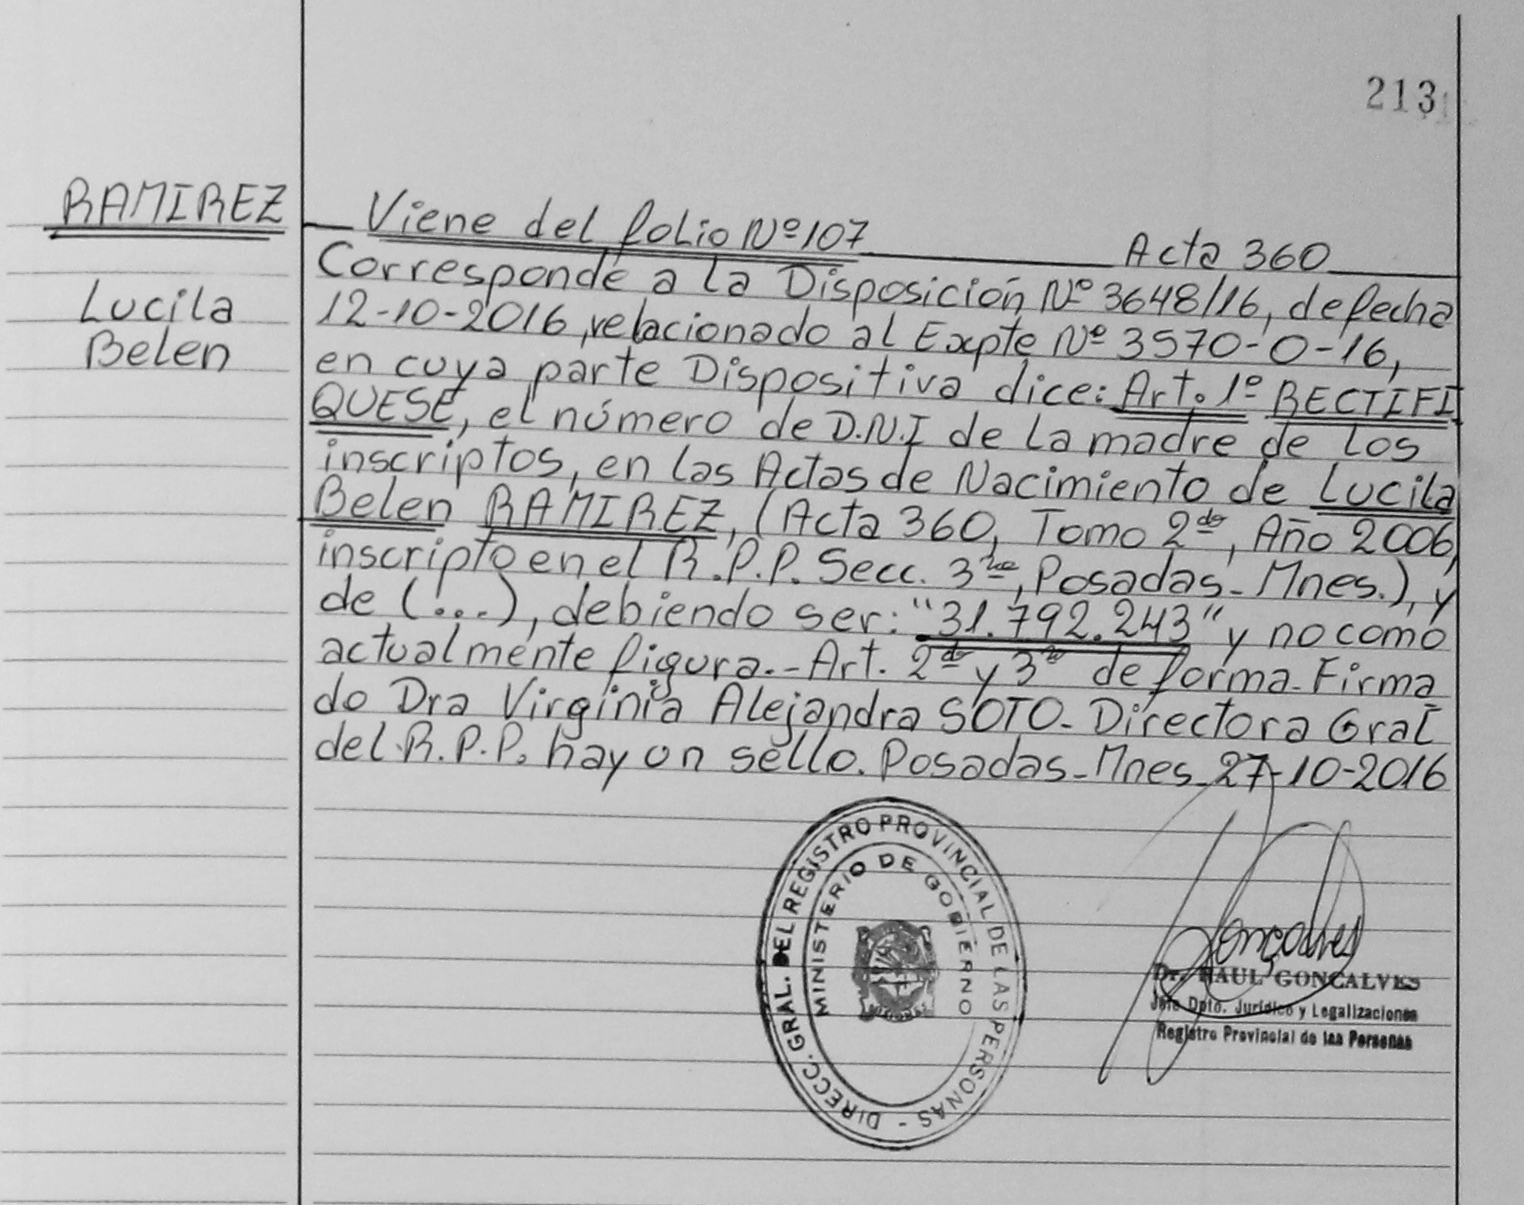 213
RAMIREZ
Lucila
Belen
Viene del folio Nº 107 Acta 360
Corresponde a la Disposición Nº 3648/16, de fecha
12-10-2016, relacionado al Expte Nº 3570-0-16,
en cuya parte Dispositiva dice: Art. 1º RECTIFI
QUESE, el número de D.N.I de la madre de los
inscriptos, en las Actas de Nacimiento de Lucila
Belen RAMIREZ, (Acta 360, Tomo 2do, Año 2006,
inscripto en el R.P.P. Secc. 3ra, Posadas-Mnes.), y
de (...), debiendo ser: "31.792.243" y no como
actualmente figura.- Art. 2do y 3ro de forma. Firma
do Dra Virginia Alejandra SOTO- Directora Gral
del R.P.P. hay un sello. Posadas-Mnes-27-10-2016
DIRECC. GRAL. DEL REGISTRO PROVINCIAL DE LAS PERSONAS -
MINISTERIO DE GOBIERNO
Gonçalves
Dr. RAUL GONCALVES
Jefe Dpto. Jurídico y Legalizaciones
Registro Provincial de las Personas